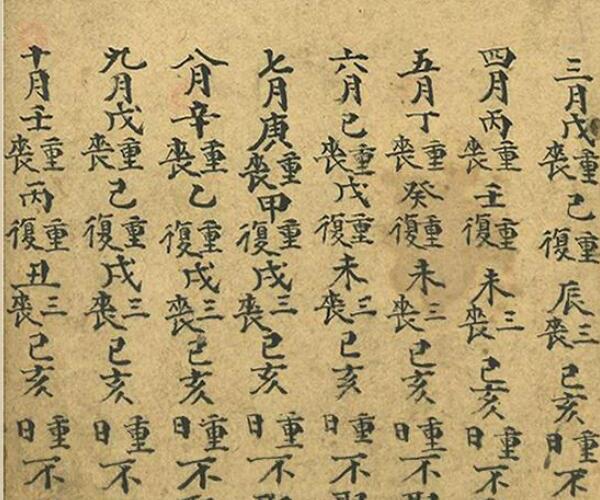 三月戊重喪己重復辰三喪巳亥重日不
四月丙重喪壬重復未三喪巳亥重日不
五月丁重喪癸重復未三喪巳亥重日不
六月己重喪戊重復未三喪巳亥重日不
七月庚重喪甲重復戌三喪巳亥重日不
八月辛重喪乙重復戌三喪巳亥重日不
九月戊重喪己重復戌三喪巳亥重日不
十月壬重喪丙重復丑三喪巳亥重日不